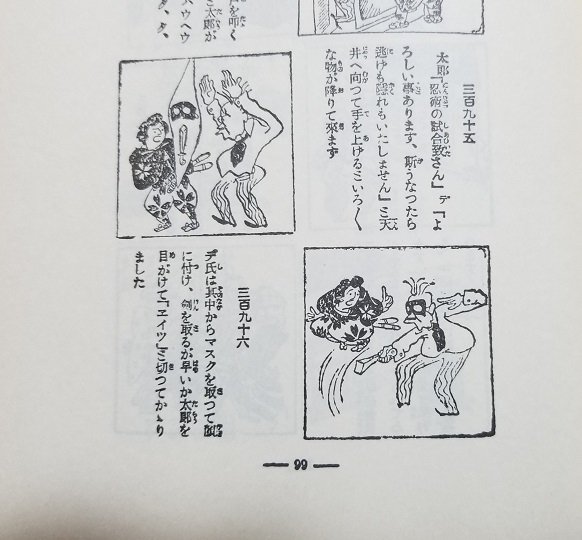 を叩く
と太郎が
ハウヘウ
タ、タ、
三百九十五
太郎『忍術の試合致さん』デ『よ
ろしい事あります、斯うなつたら
逃げも隠れもいたしません』と天
井へ向つて手を上げるといろ〱
な物が降りて來ます
三百九十六
デ氏は其中からマスクを取つて顔
に付け、劍を取るが早いか太郎を
目がけて『ヱイツ』と切つてかゝり
ました
99